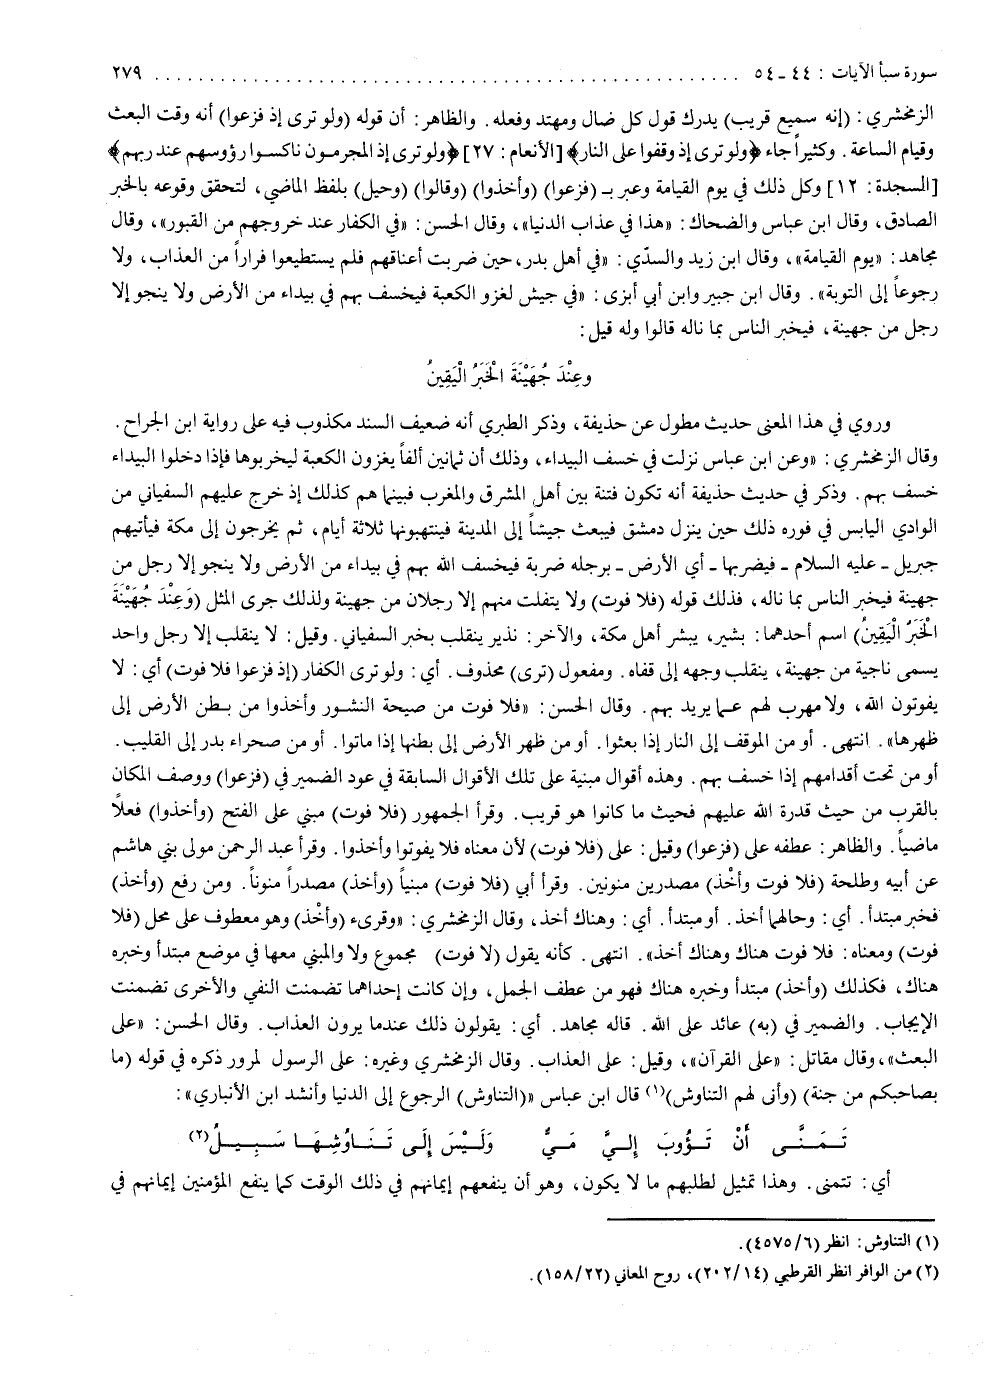 سورة سبأ الآيات : ٤٤ - ٥٤ ........................................................ ٢٧٩
الزمخشري : (إنه سميع قريب) يدرك قول كل ضال ومهتد وفعله . والظاهر : أن قوله (ولو ترى إذ فزعوا) أنه وقت البعث
وقيام الساعة . وكثيراً جاء ﴿ولو ترى إذ وقفوا على النار﴾ [الأنعام : ٢٧] ﴿ولو ترى إذ المجرمون ناكسوا رؤوسهم عند ربهم﴾
[السجدة : ١٢] وكل ذلك في يوم القيامة وعبر بـ (فزعوا) (وأخذوا) (وقالوا) (وحيل) بلفظ الماضي ، لتحقق وقوعه بالخبر
الصادق ، وقال ابن عباس والضحاك : «هذا في عذاب الدنيا» ، وقال الحسن : «في الكفار عند خروجهم من القبور» ، وقال
مجاهد : «يوم القيامة» ، وقال ابن زيد والسدّي : «في أهل بدر ، حين ضربت أعناقهم فلم يستطيعوا فراراً من العذاب ، ولا
رجوعاً إلى التوبة» . وقال ابن جبير وابن أبي أبزى : «في جيش لغزو الكعبة فيخسف بهم في بيداء من الأرض ولا ينجو إلا
رجل من جهينة ، فيخبر الناس بما ناله قالوا وله قيل :
وعِنْدَ جُهَيْنَةَ الْخَبَرُ الْيَقِينُ
وروي في هذا المعنى حديث مطول عن حذيفة ، وذكر الطبري أنه ضعيف السند مكذوب فيه على رواية ابن الجراح .
وقال الزمخشري : «وعن ابن عباس نزلت في خسف البيداء ، وذلك أن ثمانين ألفاً يغزون الكعبة ليخربوها فإذا دخلوا البيداء
خسف بهم . وذكر في حديث حذيفة أنه تكون فتنة بين أهل المشرق والمغرب فبينما هم كذلك إذ خرج عليهم السفياني من
الوادي اليابس في فوره ذلك حين ينزل دمشق فيبعث جيشاً إلى المدينة فينتهبونها ثلاثة أيام ، ثم يخرجون إلى مكة فيأتيهم
جبريل - عليه السلام - فيضربها - أي الأرض - برجله ضربة فيخسف الله بهم في بيداء من الأرض ولا ينجو إلا رجل من
جهينة فيخبر الناس بما ناله ، فذلك قوله (فلا فوت) ولا يتفلت منهم إلا رجلان من جهينة ولذلك جرى المثل (وَعِنْدَ جُهَيْنَةَ
الْخَبَرُ الْيَقِينُ) اسم أحدهما : بشير ، يبشر أهل مكة ، والآخر : نذير ينقلب بخبر السفياني . وقيل : لا ينقلب إلا رجل واحد
يسمى ناجية من جهينة ، ينقلب وجهه إلى قفاه . ومفعول (ترى) محذوف . أي : ولو ترى الكفار (إذ فزعوا فلا فوت) أي : لا
يفوتون الله ، ولا مهرب لهم عما يريد بهم . وقال الحسن : «فلا فوت من صيحة النشور وأخذوا من بطن الأرض إلى
ظهرها» . انتهى . أو من الموقف إلى النار إذا بعثوا . أو من ظهر الأرض إلى بطنها إذا ماتوا . أو من صحراء بدر إلى القليب .
أو من تحت أقدامهم إذا خسف بهم . وهذه أقوال مبنية على تلك الأقوال السابقة في عود الضمير في (فزعوا) ووصف المكان
بالقرب من حيث قدرة الله عليهم فحيث ما كانوا هو قريب . وقرأ الجمهور (فلا فوت) مبني على الفتح (وأخذوا) فعلاً
ماضياً . والظاهر : عطفه على (فزعوا) وقيل : على (فلا فوت) لأن معناه فلا يفوتوا وأخذوا . وقرأ عبد الرحمن مولى بني هاشم
عن أبيه وطلحة (فلا فوت وأخْذ) مصدرين منونين . وقرأ أبي (فلا فوت) مبنياً (وأخذ) مصدراً منوناً . ومن رفع (وأخذ)
فخبر مبتدأ . أي : وحالهما أخذ . أو مبتدأ . أي : وهناك أخذ ، وقال الزمخشري : «وقرىء (وأخْذ) وهو معطوف على محل (فلا
فوت) ومعناه : فلا فوت هناك وهناك أخذ» . انتهى . كأنه يقول (لا فوت) مجموع ولا والمبني معها في موضع مبتدأ وخبره
هناك ، فكذلك (وأخذ) مبتدأ وخبره هناك فهو من عطف الجمل ، وإن كانت إحداهما تضمنت النفي والأخرى تضمنت
الإيجاب . والضمير في (به) عائد على الله . قاله مجاهد . أي : يقولون ذلك عندما يرون العذاب . وقال الحسن : «على
البعث» ، وقال مقاتل : «على القرآن» ، وقيل : على العذاب . وقال الزمخشري وغيره : على الرسول لمرور ذكره في قوله (ما
بصاحبكم من جنة) (وأنى لهم التناوش)(١) قال ابن عباس «(التناوش) الرجوع إلى الدنيا وأنشد ابن الأنباري» :
تَمَنَّى أَنْ تَؤُوبَ إِلَيَّ مَيُّ وَلَيْسَ إِلَى تَنَاوُشِهَا سَبِيلُ(٢)
أي : تتمنى . وهذا تمثيل لطلبهم ما لا يكون ، وهو أن ينفعهم إيمانهم في ذلك الوقت كما ينفع المؤمنين إيمانهم في
(١) التناوش : انظر (٤٥٧٥/٦).
(٢) من الوافر انظر القرطبي (٢٠٢/١٤) ، روح المعاني (١٥٨/٢٢).